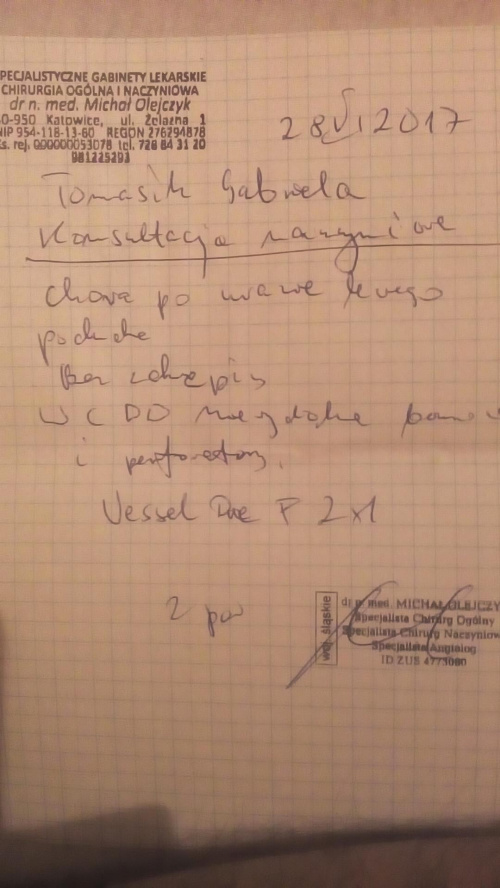 PECJALISTYCZNE GABINETY LEKARSKIE
CHIRURGIA OGÓLNA I NACZYNIOWA
dr n. med. Michał Olejczyk
0-950 Katowice, ul. Żelazna 1
NIP 954-118-13-60 REGON 276294878
s. rej. 000000053078 tel. 728 84 31 20
981225293
28 VI 2017
Tomasik Gabriela
Konsultacja naczyniowa
Chora po urazie lewego
podudzia
Bez zakrzepicy
W CDD niewydolne
i perforatory.
Vessel Due F 2x1
2
woj. śląskie
dr n. med. MICHAŁ OLEJCZY
Specjalista Chirurg Ogólny
Specjalista Chirurg Naczyniow
Specjalista Angiolog
ID ZUS 4773060